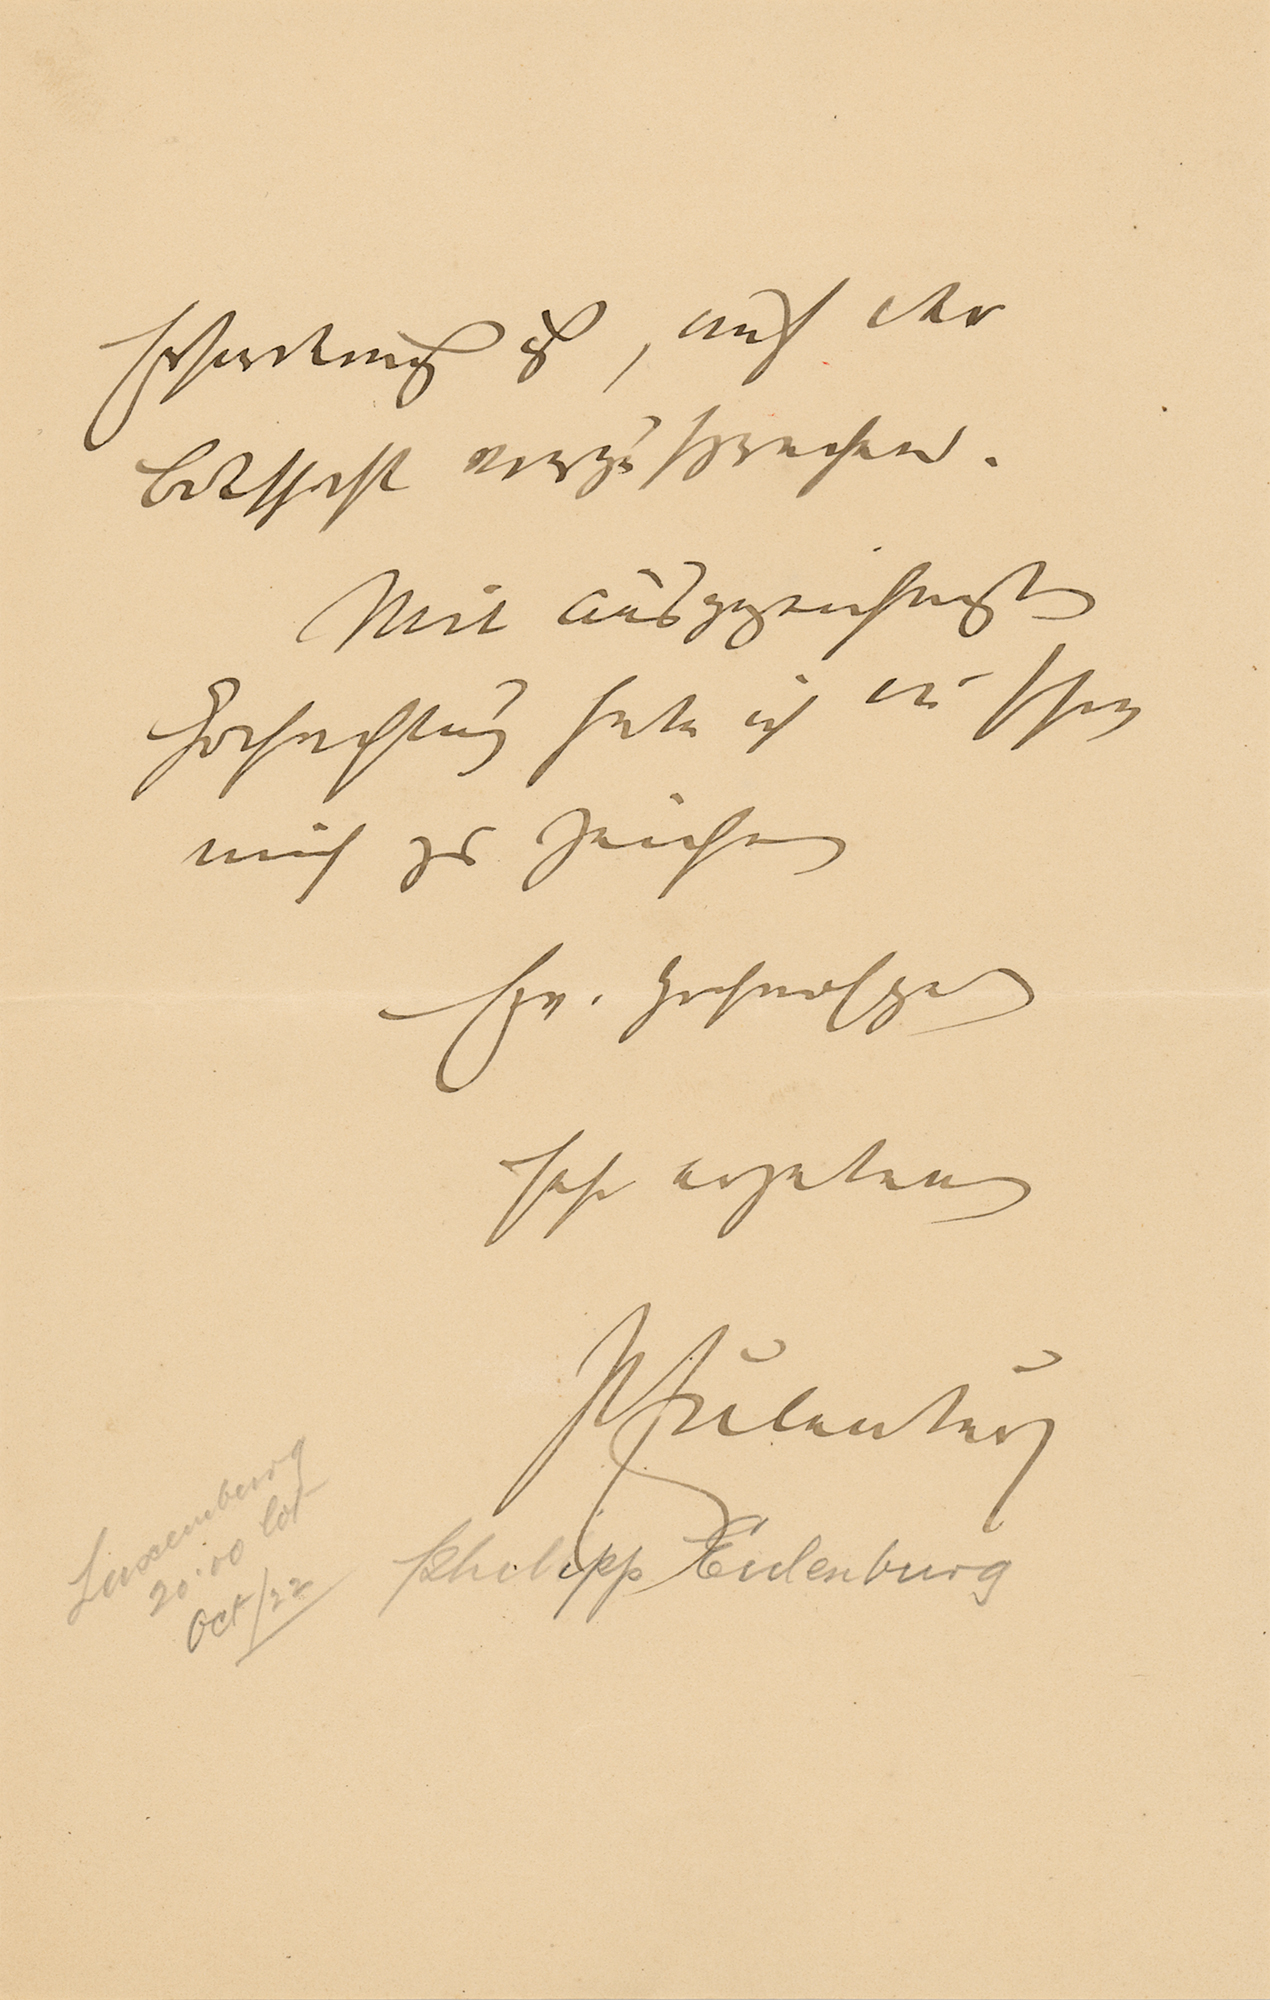 , auf der
Botschaft vorzusprechen.
Mit ausgezeichneter
Hochachtung habe ich die Ehre
mich zu zeichnen
Ew. Hochwohlgeboren
sehr ergebener
PEulenburg
Philipp Eulenburg
Luxemburg
20.00 lot
Oct/22